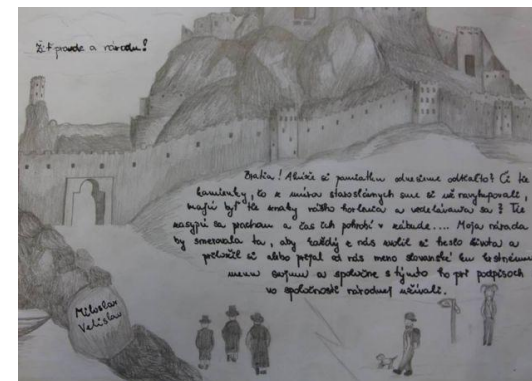 Ži k pravde a národu!
Bratia! Akúže si pamiatku odnesieme odtiaľto? Či tie
kamienky, čo z múrov staroslávnych sme si už nazbierali,
majú byť tie znaky nášho horlenia a vzdelávania sa? Tie
zasypú sa prachom a čas ich pohrobí v zábude.... Moja národa
by smerovala ta, aby každý z nás zvolil si heslo života a
priložil si alebo prijal od nás meno slovanské ku krstnému
menu svojmu a spoločne s týmto ho pri podpisoch
vo spoločnosti národnej užívali.
Miloslav
Velislav